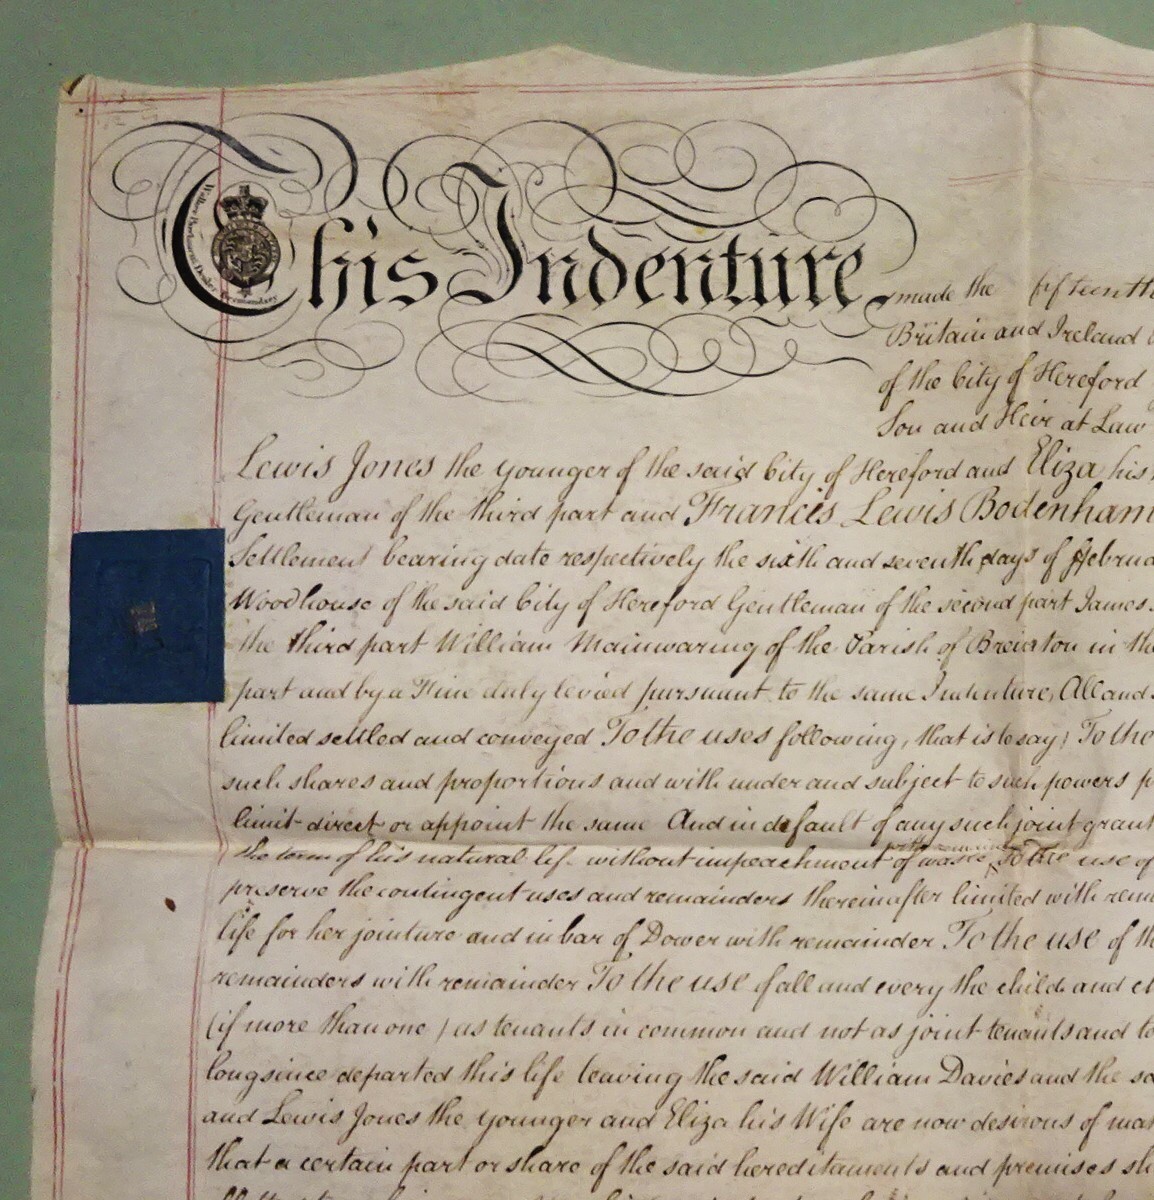 This Indenture made the fifteenth
Britain and Ireland
of the City of Hereford
Son and Heir at Law
Lewis Jones the younger of the said City of Hereford and Eliza his
Gentleman of the third part and Francis Lewis Bodenham
Settlement bearing date respectively the sixth and seventh days of Februa
Woodhouse of the said City of Hereford Gentleman of the second part James
the third part William Mainwaring of the Parish of Breinton in the
part and by a Fine duly levied pursuant to the same Indenture, All and
limited settled and conveyed To the uses following, that is to say) To the
such shares and proportions and with under and subject to such powers p
limit direct or appoint the same And in default of any such joint grant
the term of his natural life without impeachment of waste To the use of
preserve the contingent uses and remainders thereinafter limited with rem
life for her jointure and in bar of Dower with remainder To the use of th
remainders with remainder To the use of all and every the child and ch
(if more than one) as tenants in common and not as joint tenants and to
long since departed this life leaving the said William Davies and the sa
and Lewis Jones the younger and Eliza his Wife are now desirous of ma
that a certain part or share of the said hereditaments and premises sh